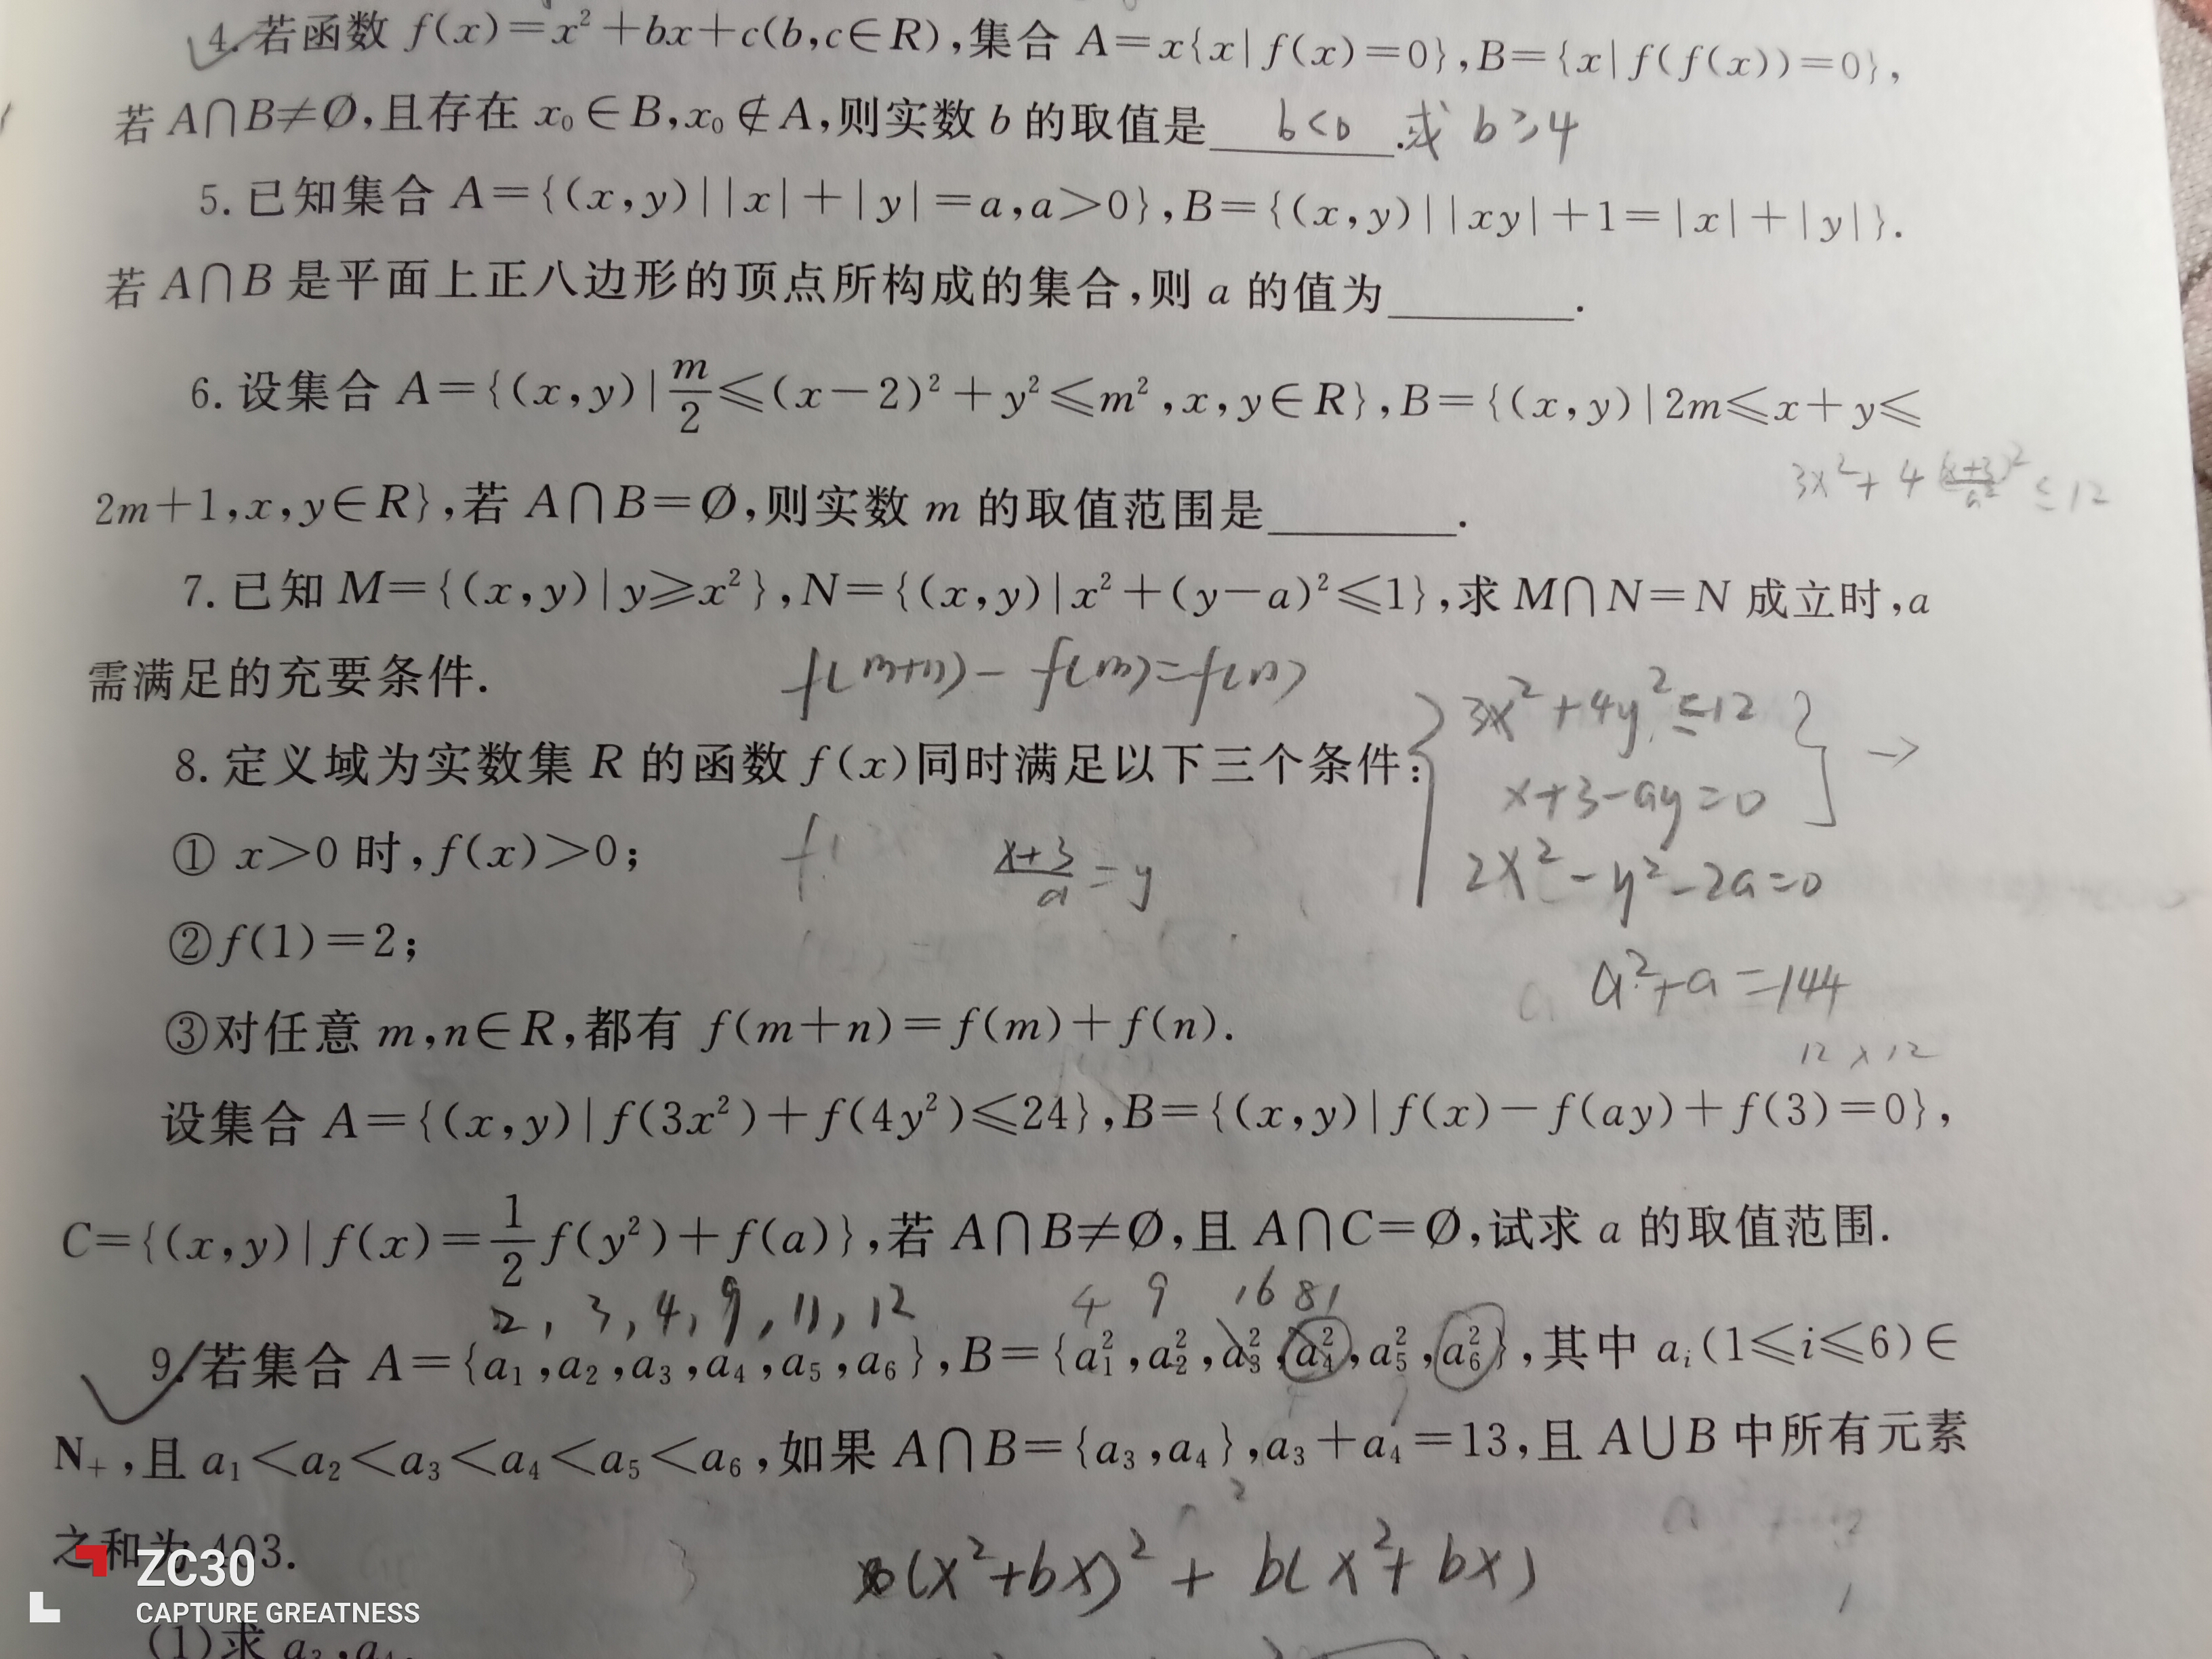 4. 若函数 f(x)=x²+bx+c(b,c∈R),集合 A=x{x|f(x)=0},B={x|f(f(x))=0},
若 A∩B≠∅,且存在 x₀∈B,x₀∉A,则实数 b 的取值是 b<0 .或 b≥4
5. 已知集合 A={(x,y)||x|+|y|=a,a>0},B={(x,y)||xy|+1=|x|+|y|}.
若 A∩B 是平面上正八边形的顶点所构成的集合,则 a 的值为________.
6. 设集合 A={(x,y)|m/2≤(x-2)²+y²≤m²,x,y∈R},B={(x,y)|2m≤x+y≤
3x²+4(x+3)²/a² ≤12
2m+1,x,y∈R},若 A∩B=∅,则实数 m 的取值范围是________.
7. 已知 M={(x,y)|y≥x²},N={(x,y)|x²+(y-a)²≤1},求 M∩N=N 成立时,a
需满足的充要条件.
f(m+n)-f(m)=f(n)
3x²+4y²≤12
8. 定义域为实数集 R 的函数 f(x)同时满足以下三个条件:
x+3-ay=0 →
① x>0 时,f(x)>0;
x+3/a=y
2x²-y²-2a=0
②f(1)=2;
a²+a=144
③对任意 m,n∈R,都有 f(m+n)=f(m)+f(n).
12×12
设集合 A={(x,y)|f(3x²)+f(4y²)≤24},B={(x,y)|f(x)-f(ay)+f(3)=0},
C={(x,y)|f(x)=1/2f(y²)+f(a)},若 A∩B≠∅,且 A∩C=∅,试求 a 的取值范围.
2,3,4,9,11,12 4 9 16 81
9. 若集合 A={a₁,a₂,a₃,a₄,a₅,a₆},B={a₁²,a₂²,a₃²,a₄²,a₅²,a₆²},其中 aᵢ(1≤i≤6)∈
N₊,且 a₁<a₂<a₃<a₄<a₅<a₆,如果 A∩B={a₃,a₄},a₃+a₄=13,且 A∪B 中所有元素
之和为 403.
(x²+bx)²+b(x²+bx)
ZC30
CAPTURE GREATNESS
(1)求 a₃,a₄.